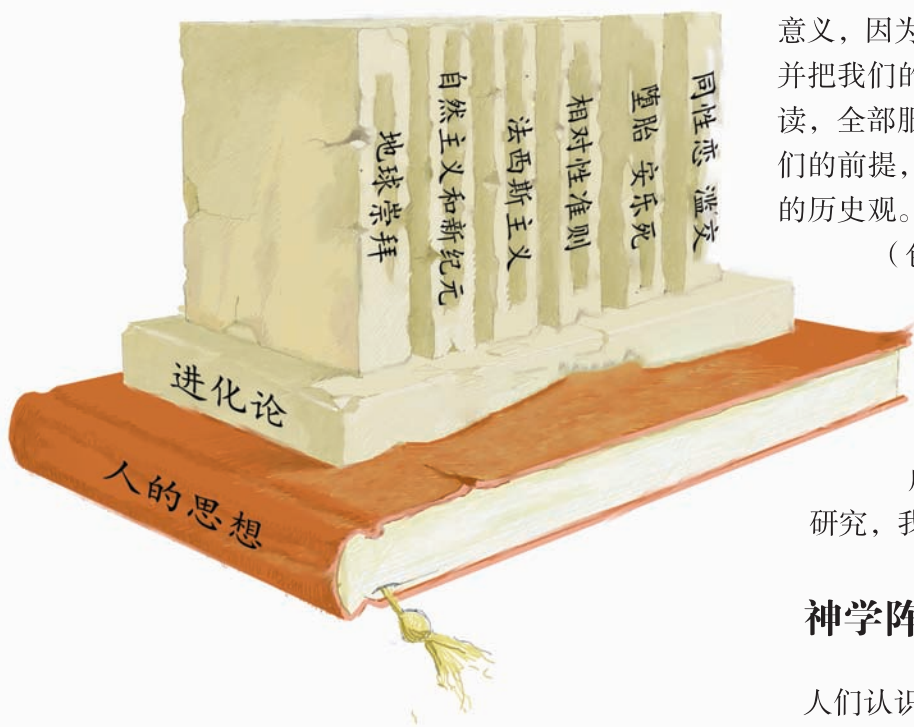 地球崇拜
自然主义和新纪元
法西斯主义
相对性准则
堕胎 安乐死
同性恋 滥交
进化论
人的思想
意义，因为
并把我们的
读，全部服
们的前提，
的历史观。
研究，我
神学阵
人们认识